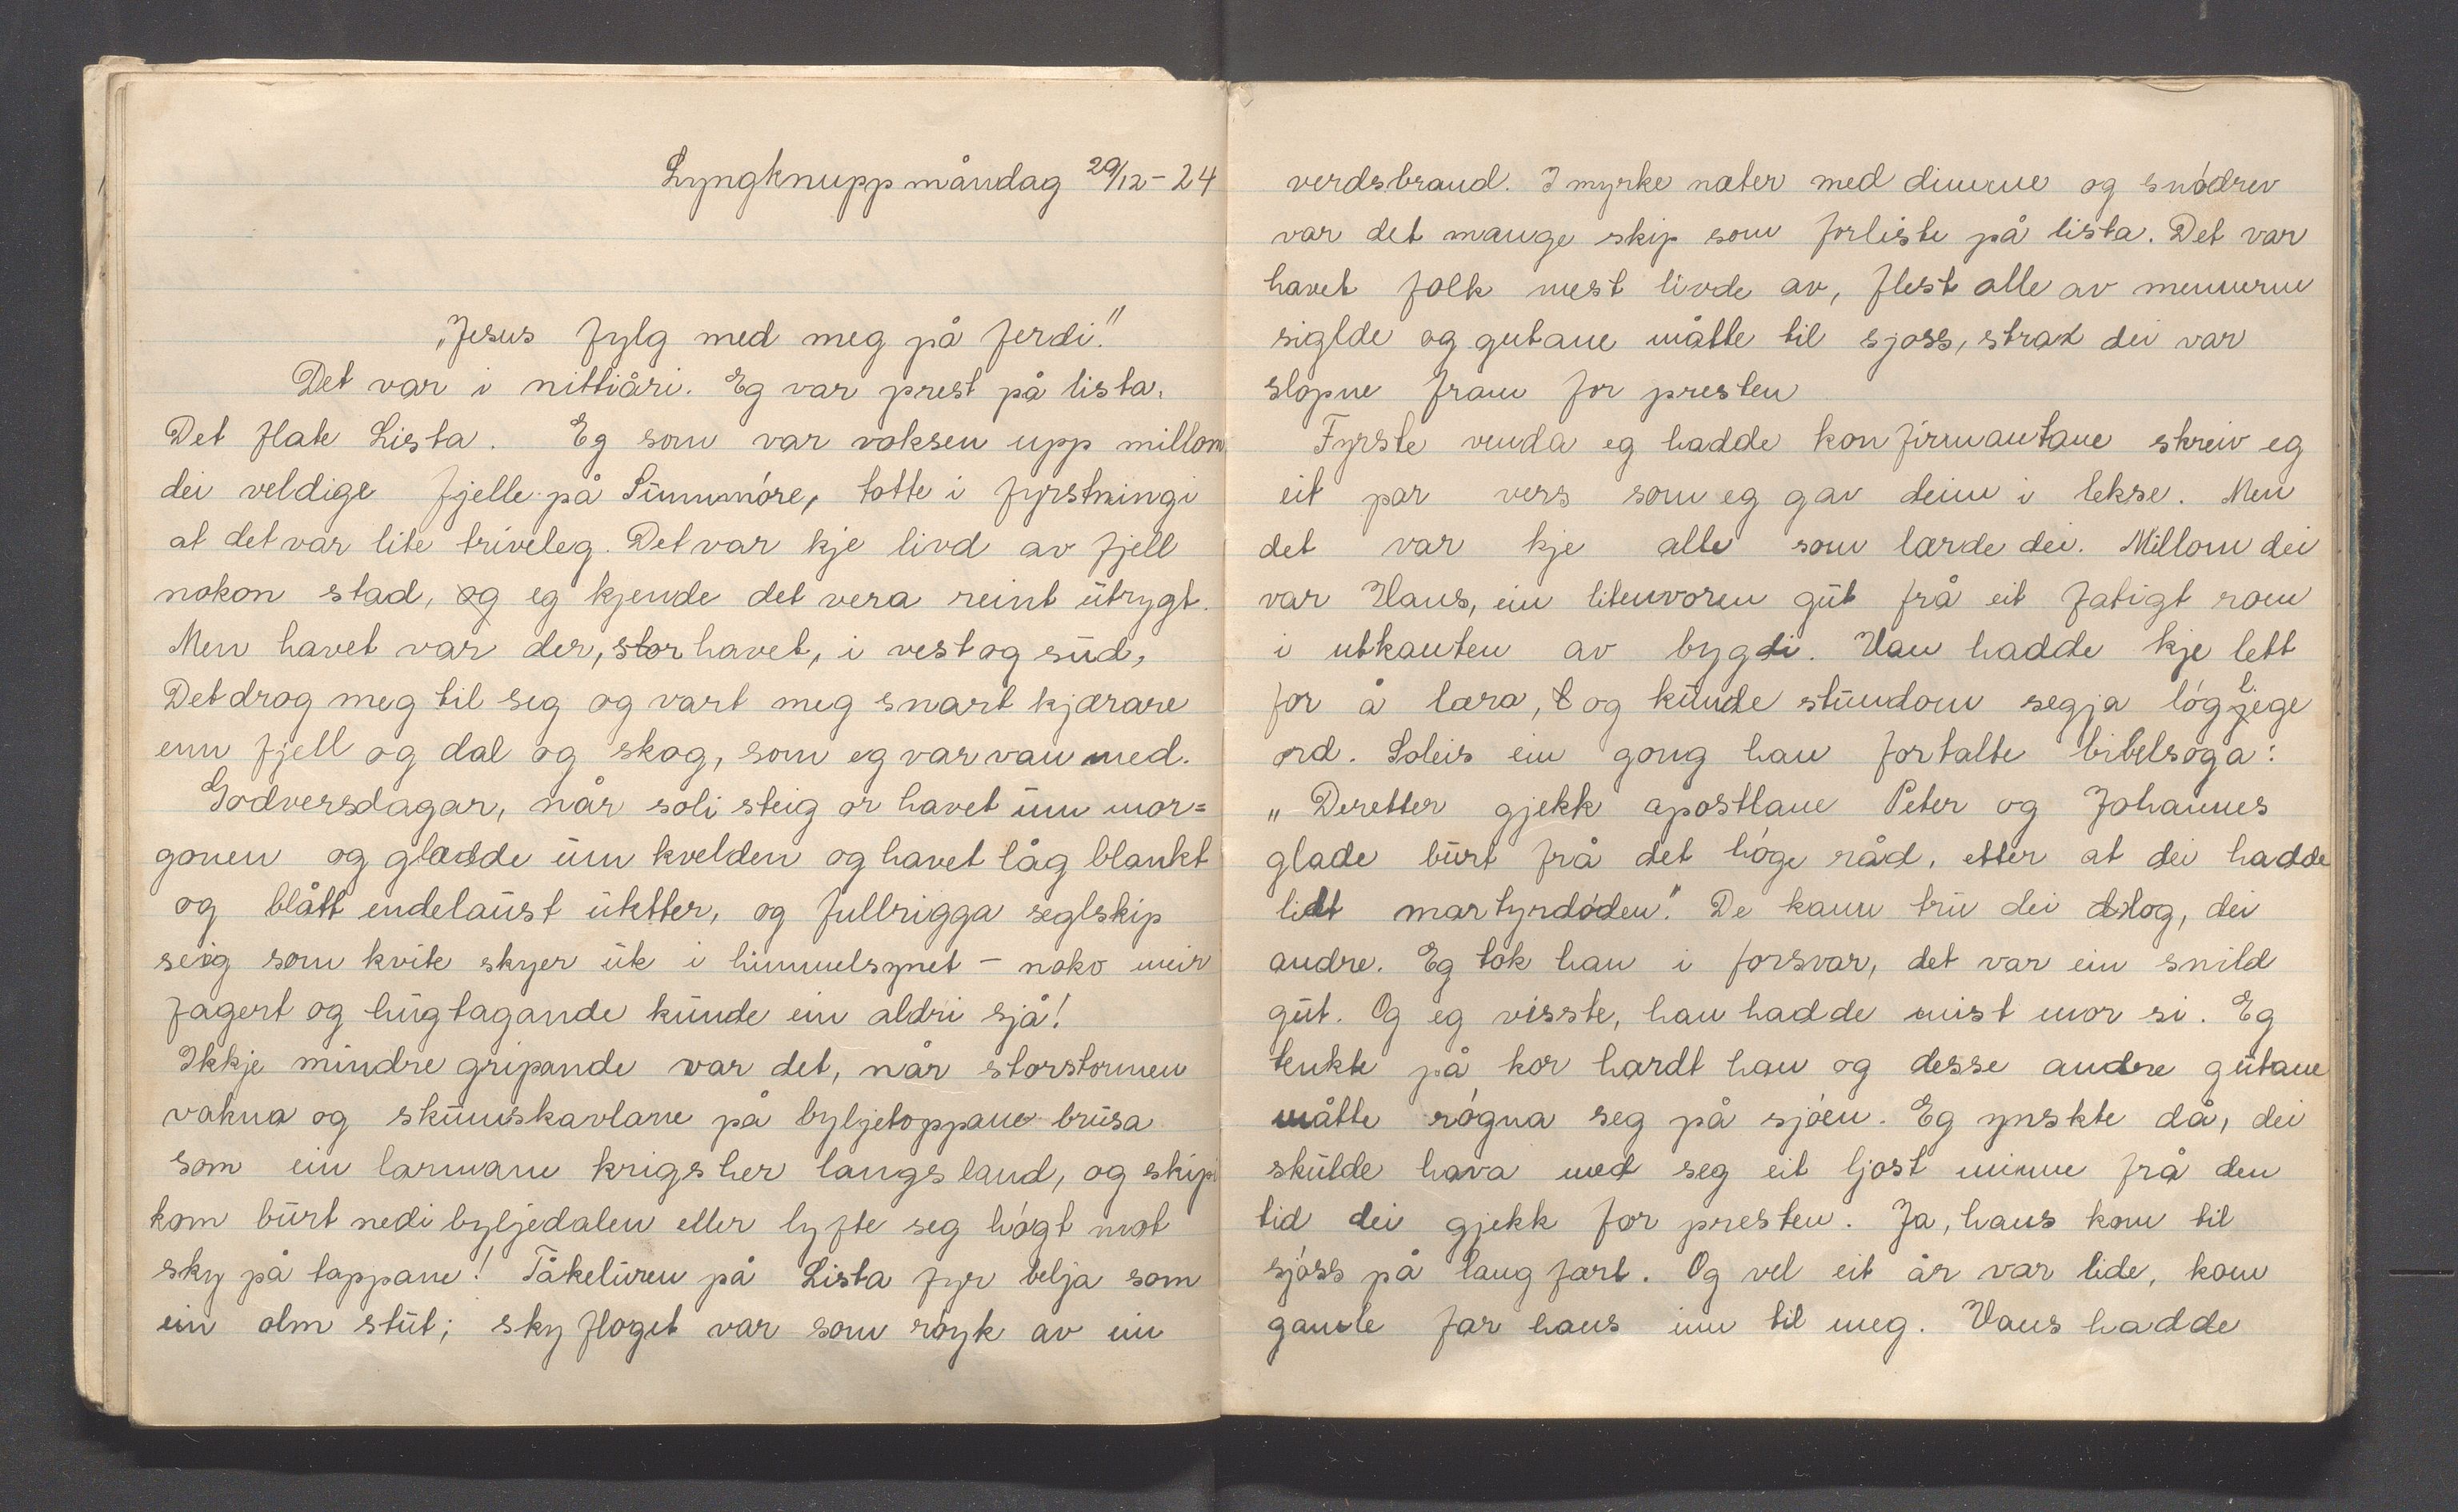 Lyngknupp måndag 29/12-24
„Jesus fylg med meg på ferdi."
Det var i nittiåri. Eg var prest på lista.
Det flate Lista. Eg som var voksen upp millom
dei veldige fjelle på Sunnmóre, totte i fyrstningi
at det var lite triveleg. Det var kje livd av fjell
nokon stad, og eg kjende det vera reint utrygt.
Men havet var der, storhavet, i vest og sud,
Det drog meg til seg og vart meg snart kjærare
enn fjell og dal og skog, som eg var van med.
Godversdagar, når soli steig or havet um mor=
gonen og gladde um kvelden og havet låg blankt
og blått endelaust uktter, og fullrigga seglskip
seig som kvite skyer ut i himmelsynet - noko meir
fagert og hugtagande kunde ein aldri sjå!
Ikkje mindre gripande var det, når storstormen
vakna og skumskavlane på byljetoppane brusa
som ein larmane krigsher langs land, og skipi
kom burt nedi byljedalen eller lyfte seg hógt mot
sky på tappane! Tåkeluren på Lista fyr belja som
ein olm stut; skyfloget var som róyk av ein
verdsbrand. I myrke næter med dimme og snódrev
var det mange skip som forliste på lista. Det var
havet folk mest livde av, flest alle av mennerne
siglde og gutane måtte til sjoss, strax dei var
slopne fram for presten
Fyrste venda eg hadde konfirmantane skreiv eg
eit par vers som eg gav deim i lekse. Men
det var kje alle som lærde dei. Millom dei
var Hans, ein litenvoren gut frå eit fatigt rom
i utkanten av bygdi. Han hadde kje lett
for å læra, og kunde stundom segja lóglege
ord. Soleis ein gong han fortalte bibelsoga:
„Deretter gjekk apostlane Peter og Johannes
glade burt frå det hóge råd, etter at dei hadde
lidt martyrdóden." De kann tru dei log, dei
andre. Eg tok han i forsvar, det var ein snild
gut. Og eg visste, han hadde mist mor si. Eg
tenkte på kor hardt han og desse andre gutane
måtte rógna seg på sjóen. Eg ynskte då, dei
skulde hava med seg eit ljost minne frå den
tid dei gjekk for presten. Ja, hans kom til
sjóss på langfart. Og vel eit år var lide, kom
gamle far hans inn til meg. Hans hadde